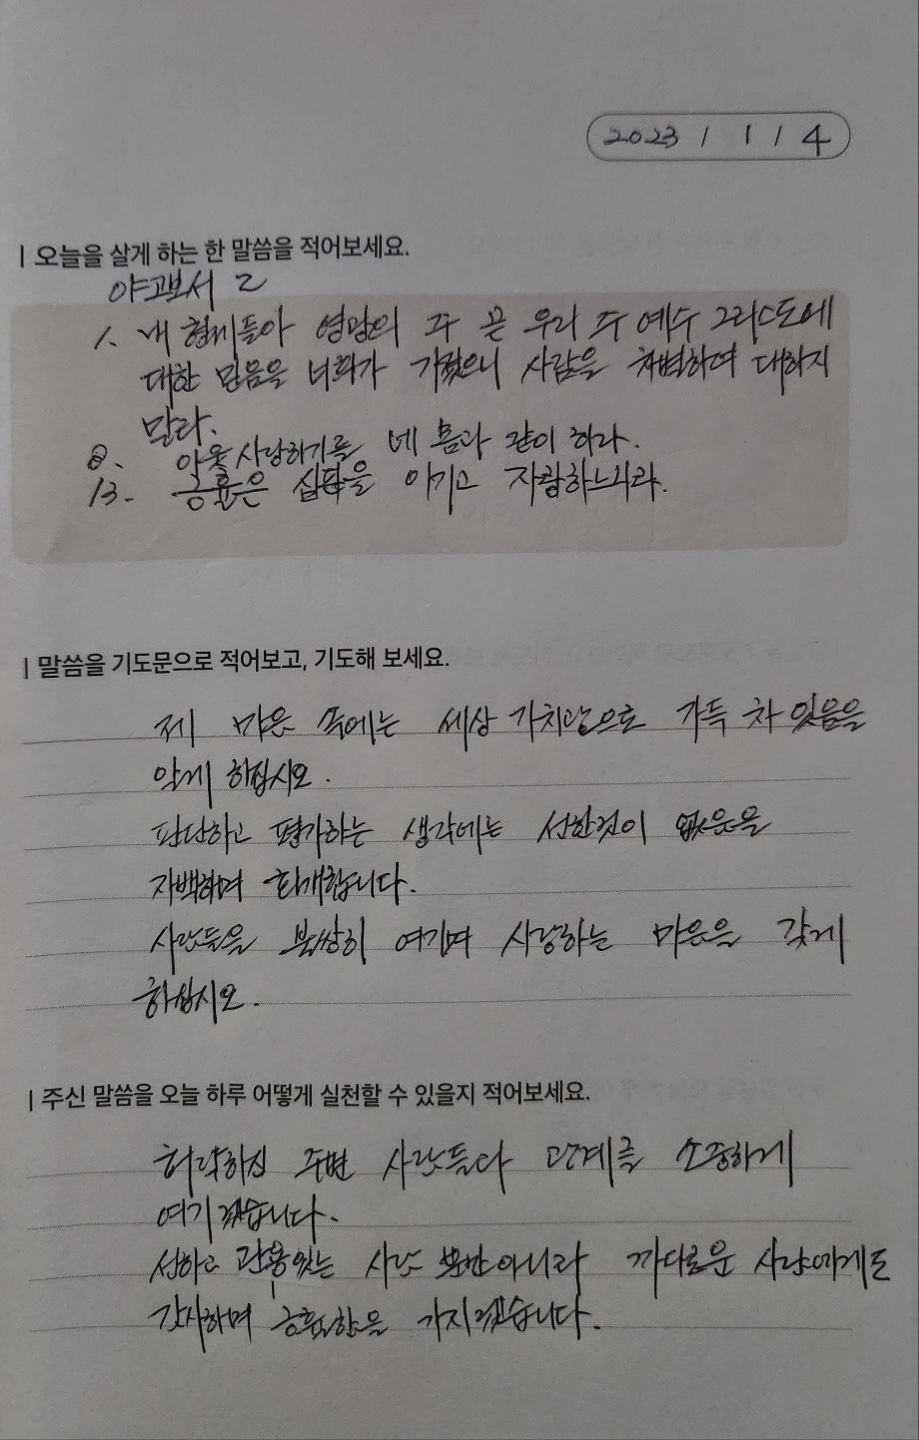 2023 / 1 / 4
| 오늘을 살게 하는 한 말씀을 적어보세요.
야고보서 2
1. 내 형제들아 영광의 주 곧 우리 주 예수 그리스도에
대한 믿음을 너희가 가졌으니 사람을 차별하여 대하지
말라.
8. 이웃 사랑하기를 네 몸과 같이 하라.
13. 긍휼은 심판을 이기고 자랑하느니라.
| 말씀을 기도문으로 적어보고, 기도해 보세요.
제 마음 속에는 세상 가치관으로 가득 차 있음을
알게 하십시오.
판단하고 평가하는 생각에는 선한것이 없음을
자백하며 회개합니다.
사람들을 불쌍히 여기며 사랑하는 마음을 갖게
하십시오.
| 주신 말씀을 오늘 하루 어떻게 실천할 수 있을지 적어보세요.
허락하신 주변 사람들과 관계를 소중하게
여기겠습니다.
선하고 관용있는 사람 뿐만아니라 까다로운 사람에게도
감사하며 긍휼함을 가지겠습니다.